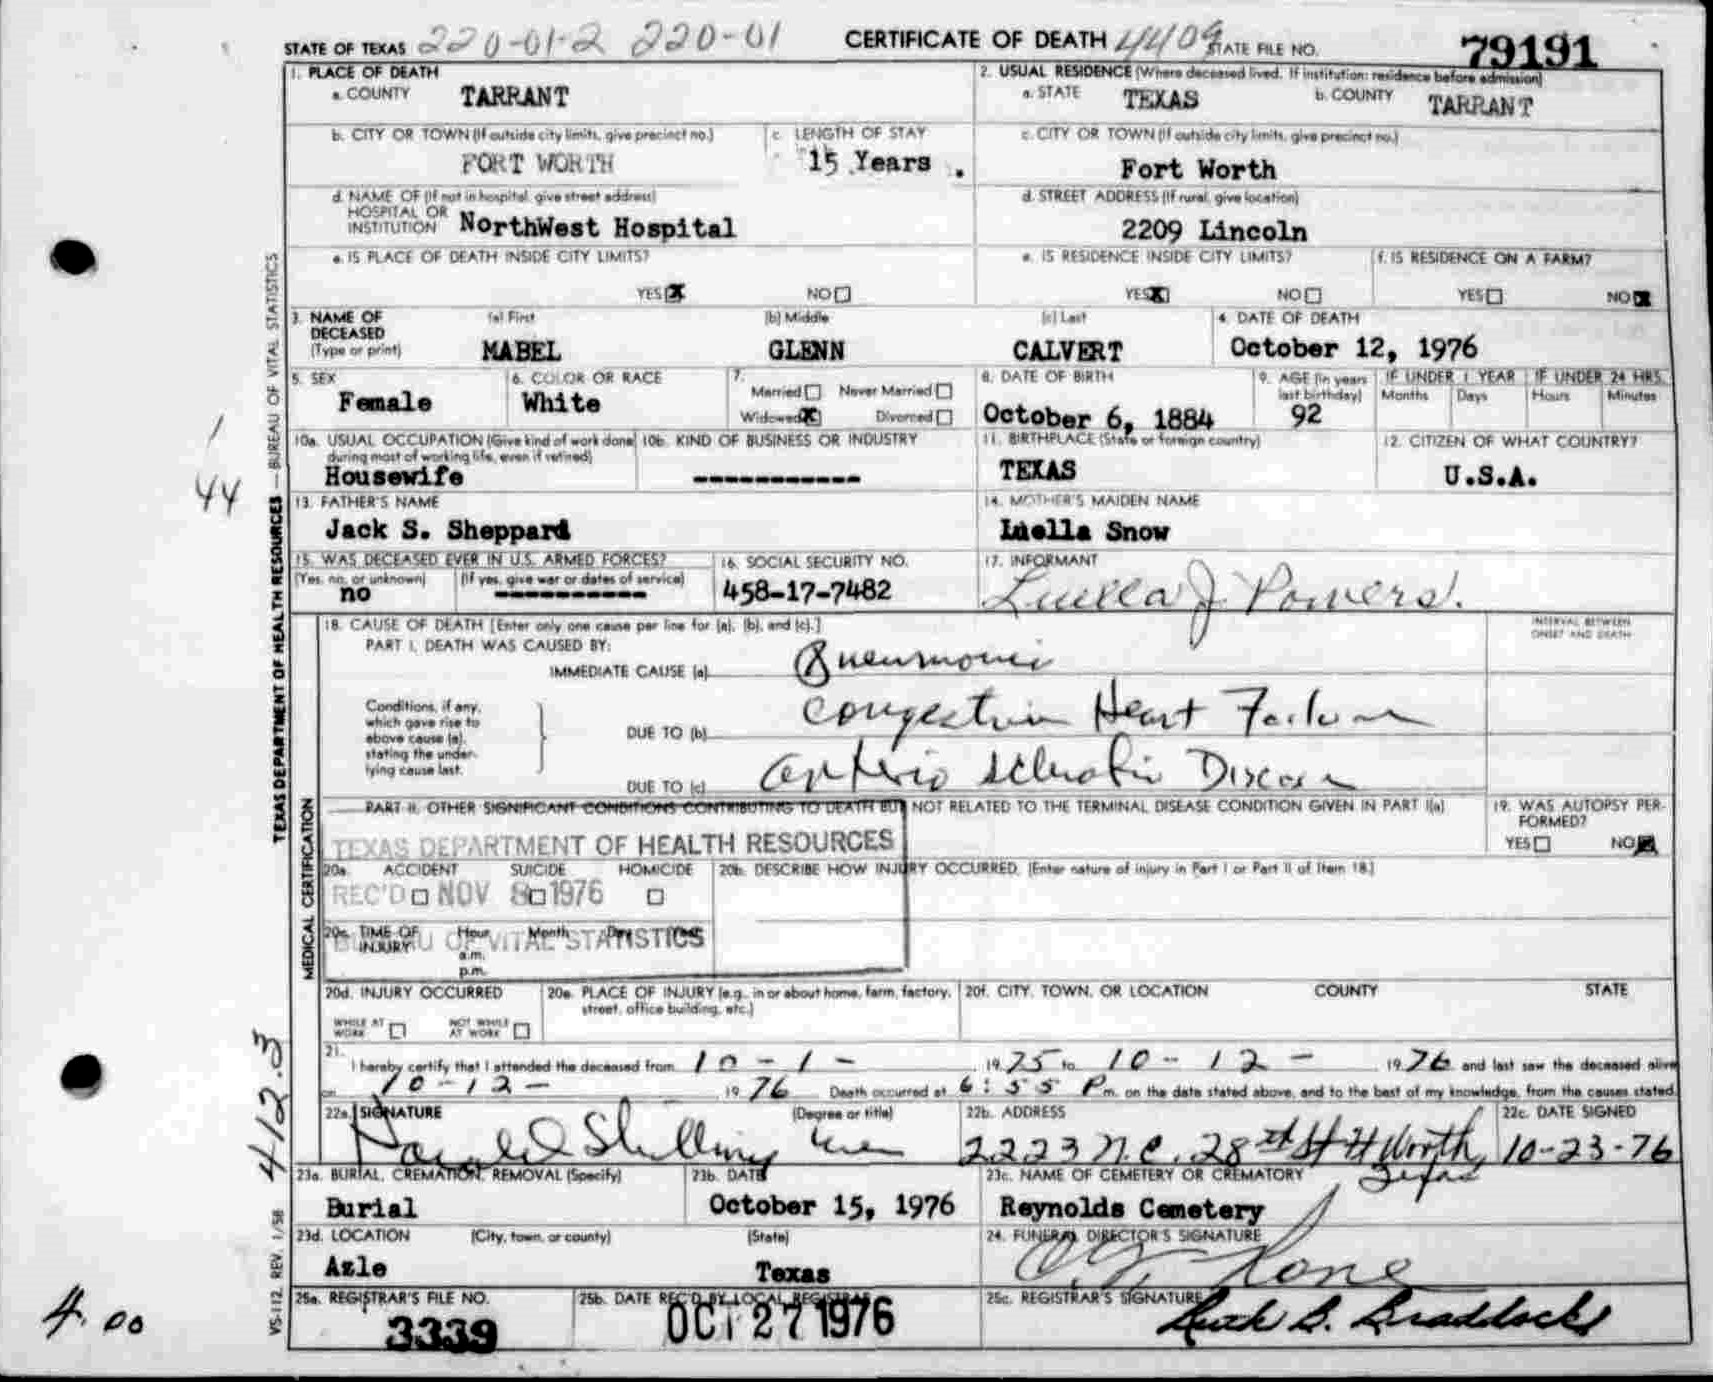 STATE OF TEXAS 220-01-2 220-01 CERTIFICATE OF DEATH 4409 STATE FILE NO. 79191
1. PLACE OF DEATH
a. COUNTY TARRANT
2. USUAL RESIDENCE (Where deceased lived. If institution: residence before admission)
a. STATE TEXAS b. COUNTY TARRANT
b. CITY OR TOWN (If outside city limits, give precinct no.)
FORT WORTH
c. LENGTH OF STAY
15 Years
c. CITY OR TOWN (If outside city limits, give precinct no.)
Fort Worth
d. NAME OF (If not in hospital, give street address)
HOSPITAL OR
INSTITUTION NorthWest Hospital
d. STREET ADDRESS (If rural, give location)
2209 Lincoln
e. IS PLACE OF DEATH INSIDE CITY LIMITS?
YES NO
e. IS RESIDENCE INSIDE CITY LIMITS?
YES NO
f. IS RESIDENCE ON A FARM?
YES NO
3. NAME OF
DECEASED
(Type or print)
(a) First (b) Middle (c) Last
MABEL GLENN CALVERT
4. DATE OF DEATH
October 12, 1976
5. SEX
Female
6. COLOR OR RACE
White
7.
Married Never Married
Widowed Divorced
8. DATE OF BIRTH
October 6, 1884
9. AGE (In years
last birthday)
92
IF UNDER 1 YEAR IF UNDER 24 HRS.
Months Days Hours Minutes
10a. USUAL OCCUPATION (Give kind of work done
during most of working life, even if retired)
Housewife
10b. KIND OF BUSINESS OR INDUSTRY
------------
11. BIRTHPLACE (State or foreign country)
TEXAS
12. CITIZEN OF WHAT COUNTRY?
U.S.A.
13. FATHER'S NAME
Jack S. Sheppard
14. MOTHER'S MAIDEN NAME
Luella Snow
15. WAS DECEASED EVER IN U.S. ARMED FORCES?
(Yes, no, or unknown) (If yes, give war or dates of service)
no -----------
16. SOCIAL SECURITY NO.
458-17-7482
17. INFORMANT
Luella J Powers.
18. CAUSE OF DEATH [Enter only one cause per line for (a), (b), and (c).]
PART I. DEATH WAS CAUSED BY:
IMMEDIATE CAUSE (a) Pneumonia
INTERVAL BETWEEN
ONSET AND DEATH
Conditions, if any,
which gave rise to
above cause (a),
stating the under-
lying cause last.
DUE TO (b) Congestive Heart Failure
DUE TO (c) Arterio Sclerotic Disease
PART II. OTHER SIGNIFICANT CONDITIONS CONTRIBUTING TO DEATH BUT NOT RELATED TO THE TERMINAL DISEASE CONDITION GIVEN IN PART I(a)
19. WAS AUTOPSY PER-
FORMED?
YES NO
TEXAS DEPARTMENT OF HEALTH RESOURCES
20a. ACCIDENT SUICIDE HOMICIDE
20b. DESCRIBE HOW INJURY OCCURRED. (Enter nature of injury in Part I or Part II of Item 18.)
REC'D NOV 8 1976
20c. TIME OF
INJURY
Hour Month Day Year
a.m.
p.m.
BUREAU OF VITAL STATISTICS
20d. INJURY OCCURRED
WHILE AT
WORK
NOT WHILE
AT WORK
20e. PLACE OF INJURY (e.g., in or about home, farm, factory,
street, office building, etc.)
20f. CITY, TOWN, OR LOCATION COUNTY STATE
21.
I hereby certify that I attended the deceased from 10-1- 1975 to 10-12- 1976 and last saw the deceased alive
on 10-12- 1976 Death occurred at 6:55 P m. on the date stated above, and to the best of my knowledge, from the causes stated.
22a. SIGNATURE (Degree or title)
22b. ADDRESS
2223 N.E. 28th St Ft Worth, Texas
22c. DATE SIGNED
10-23-76
23a. BURIAL, CREMATION, REMOVAL (Specify)
Burial
23b. DATE
October 15, 1976
23c. NAME OF CEMETERY OR CREMATORY
Reynolds Cemetery
23d. LOCATION (City, town, or county) (State)
Azle Texas
24. FUNERAL DIRECTOR'S SIGNATURE
25a. REGISTRAR'S FILE NO.
3339
25b. DATE REC'D BY LOCAL REGISTRAR
OCT 27 1976
25c. REGISTRAR'S SIGNATURE
Ruth B. Braddock
TEXAS DEPARTMENT OF HEALTH RESOURCES — BUREAU OF VITAL STATISTICS
MEDICAL CERTIFICATION
VS-112, REV. 1/58
1
44
412.3
4.00